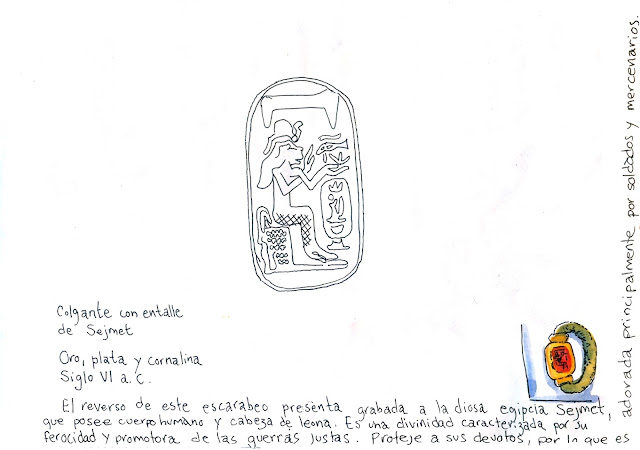 Colgante con entalle
de Sejmet
Oro, plata y cornalina
Siglo VI a.C.
El reverso de este escarabeo presenta grabada a la diosa egipcia Sejmet,
que posee cuerpo humano y cabeza de leona. Es una divinidad caracterizada por su
ferocidad y promotora de las guerras justas. Proteje a sus devotos, por lo que es
adorada principalmente por soldados y mercenarios.